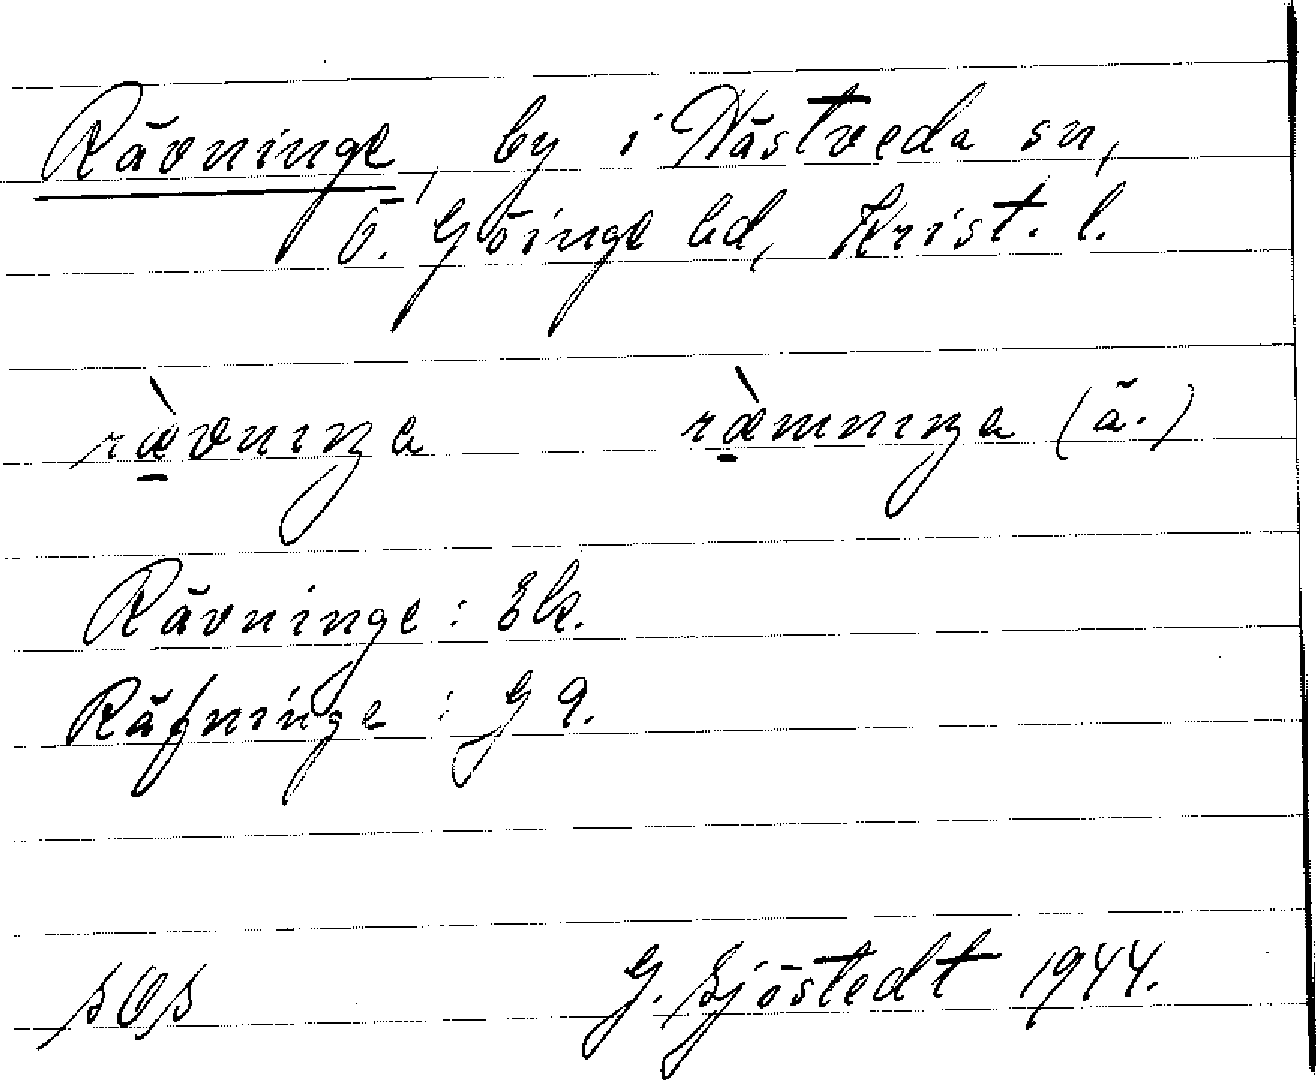 Rävninge, by i Hästveda sn,
Ö. Göinge hd, Krist. l.
ræ̀vniŋa ræ̀mniŋa (ä.)
Rävninge: Ek.
Räfninge: G 9.
G. Sjöstedt 1944.